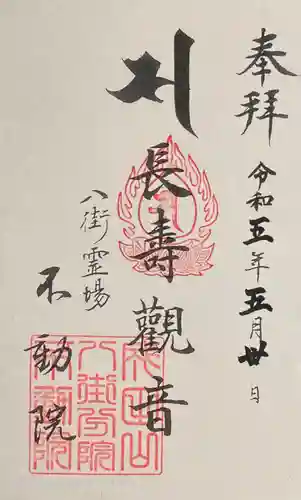 奉拝
令和五年五月廿日
長壽觀音
八街霊場
不動院